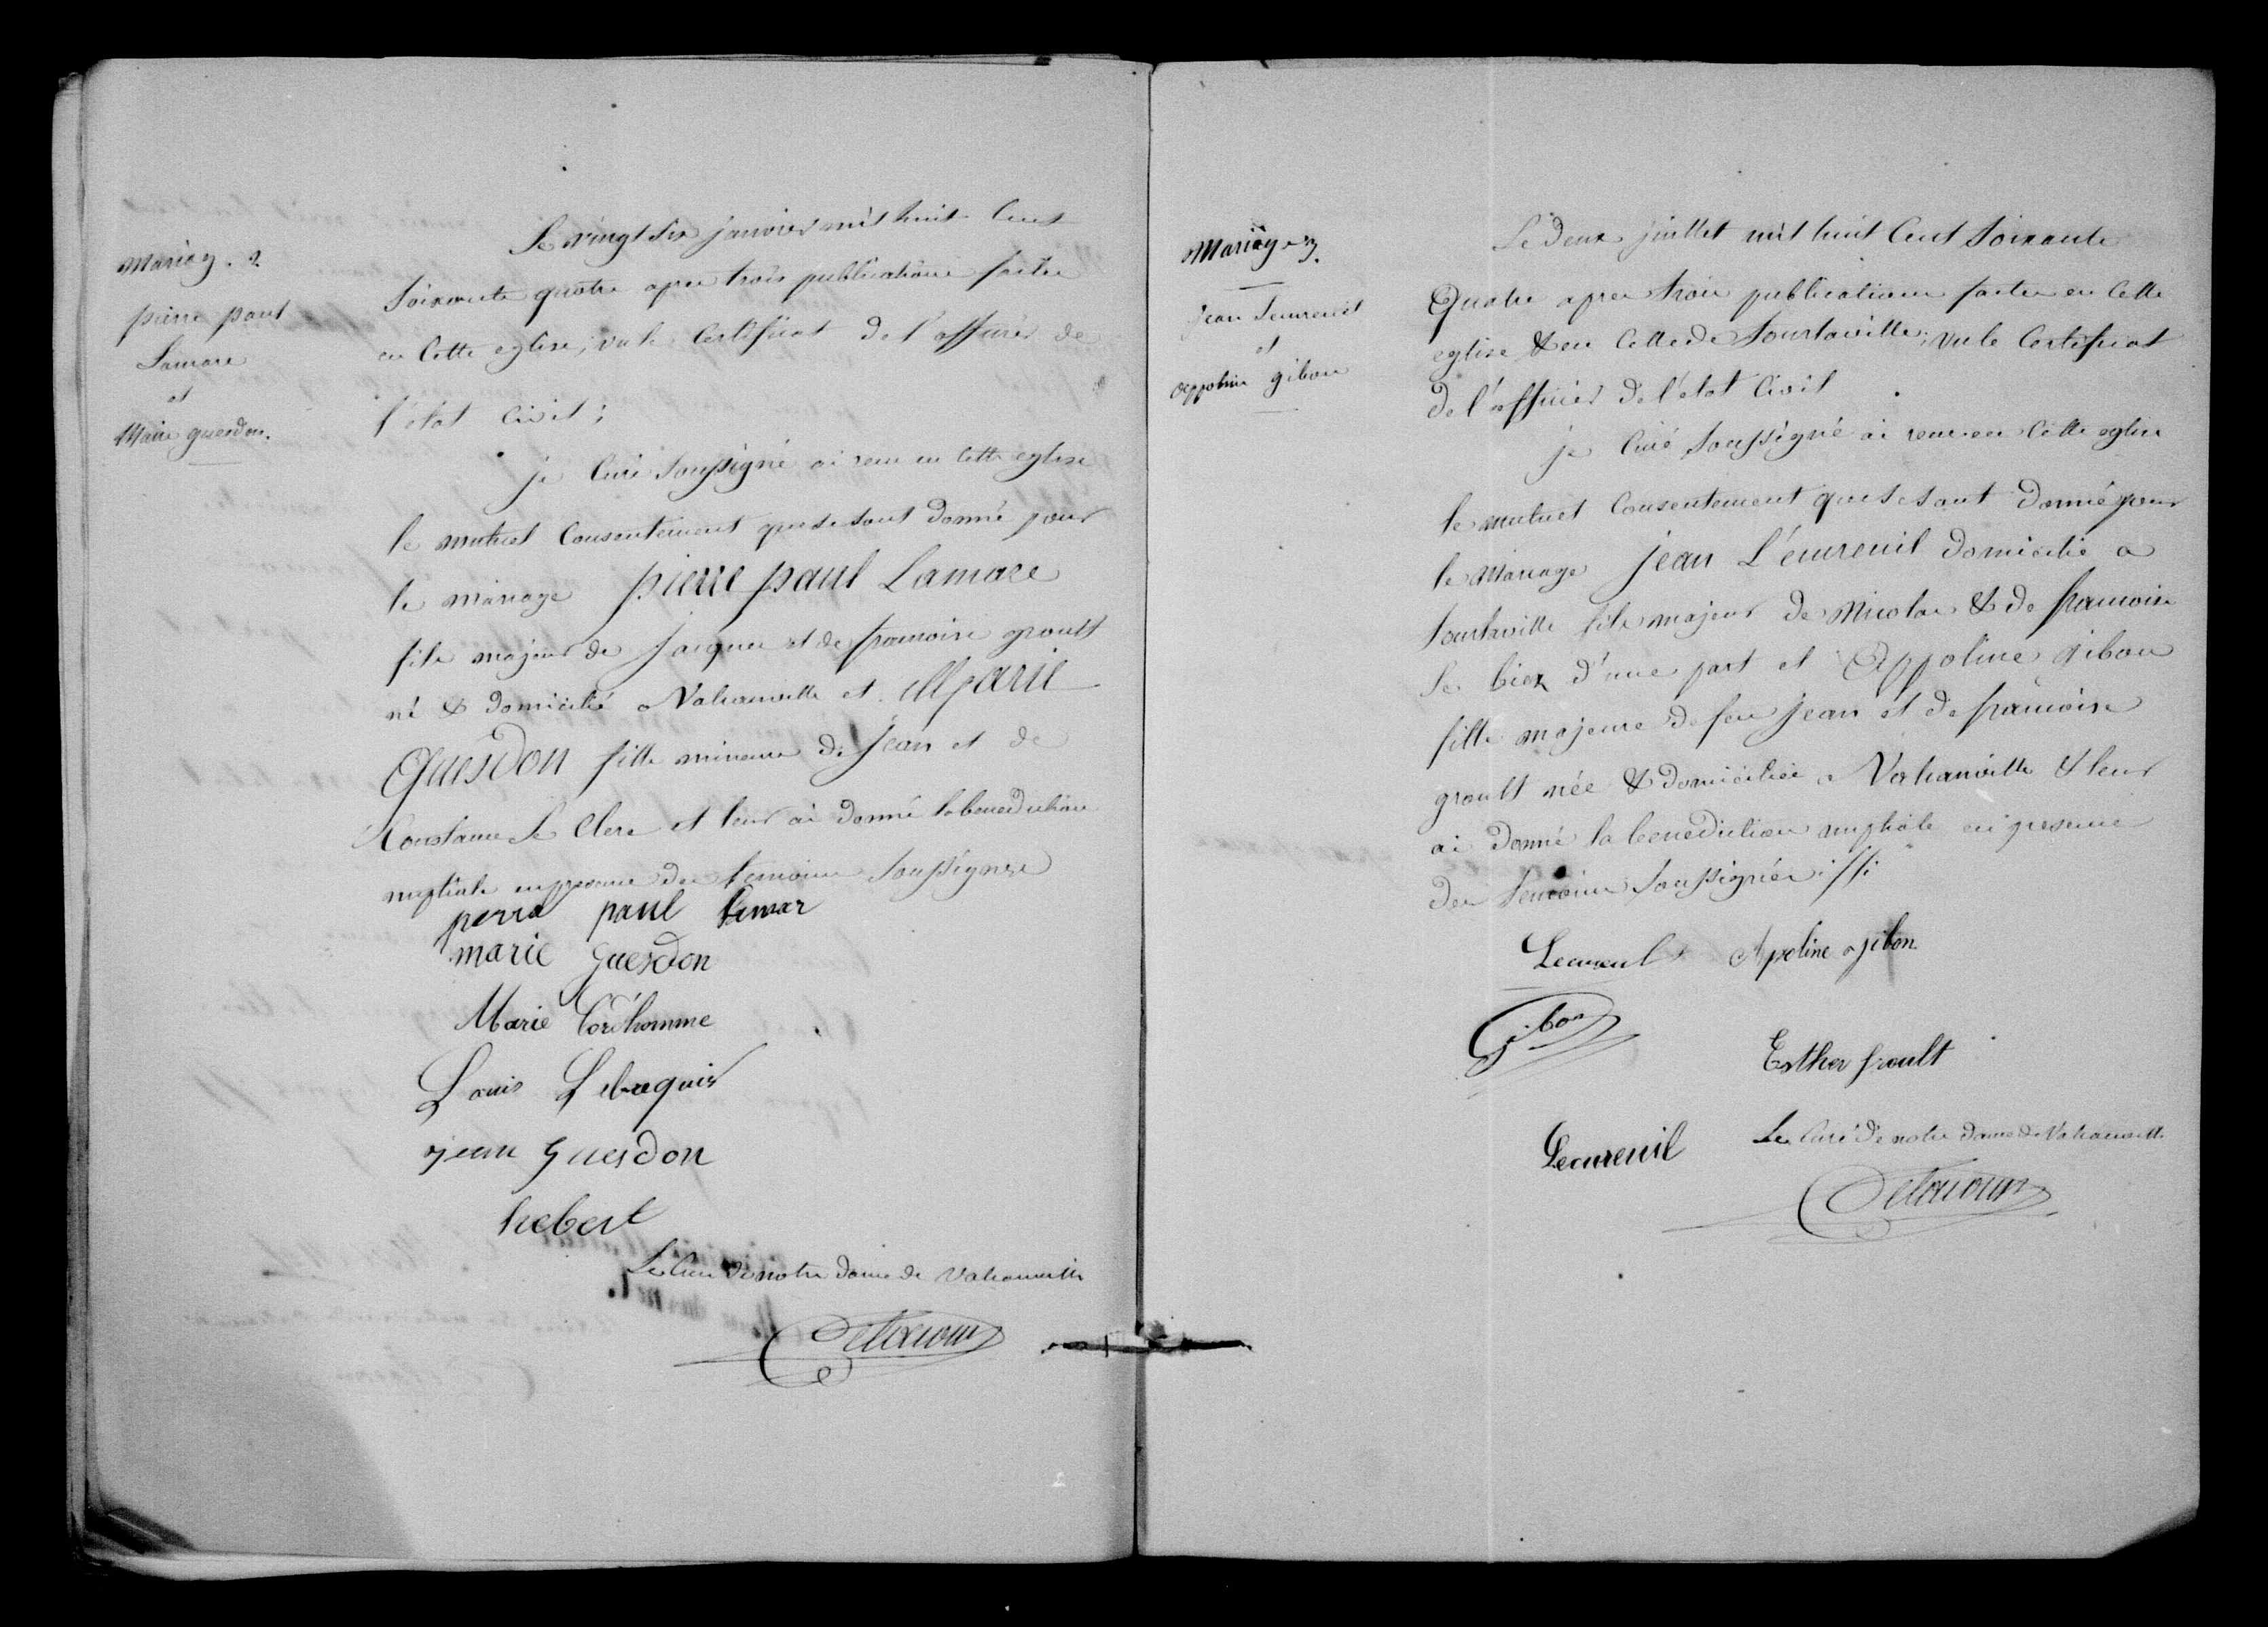 Mariag. 2.
pierre paul
Lamare
et
Marie guesdon.
Le vingt six janvier mil huit cent
soixante quatre apres trois publications faites
en cette eglise; vu le certificat de l'officier de
l'état civil;
je curé soussigné ai reçu en cette eglise
le mutuel consentement que se sont donné pour
le mariage pierre paul Lamare
fils majeur de Jacques et de francoise groult
né & domicilié a Vatrauville et Marie
Guesdon fille mineure de Jean et de
Constance Le Clerc et leur ai donné la benediction
nuptiale en presence des temoins soussignés
perre paul lamar
marie guesdon
Marie Cordhomme
Louis
jean guesdon
hebert
Le Curé de notre dame de
Mariage 3.
Jean Lecureuil
et
Appoline gibon
Le deux juillet mil huit cent soixante
Quatre apres trois publications faites en cette
eglise & en celle de tourlaville; vu le certificat
de l'officier de l'état civil
je curé soussigné ai reçu en cette eglise
le mutuel consentement que se sont donné pour
le mariage jean L'écureuil domicilié a
tourlaville fils majeur de Nicolas & de francoise
Le biez d'une part et Appoline gibon
fille majeure de feu jean et de francoise
groult née & domiciliée a & leur
ai donné la benediction nuptiale en presence
des temoins soussignés ://:
Lecureuil Apoline gibon
Gibon
Esther groult
Lecureuil
Le Curé de notre dame de